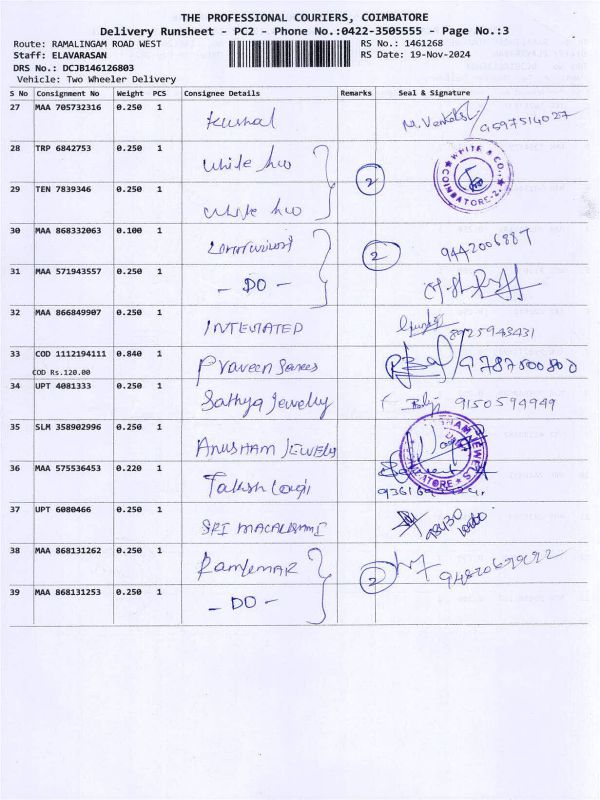 THE PROFESSIONAL COURIERS, COIMBATORE
Delivery Runsheet - PC2 - Phone No.:0422-3505555 - Page No.:3
Route: RAMALINGAM ROAD WEST
RS No.: 1461268
Staff: ELAVARASAN
RS Date: 19-Nov-2024
DRS No.: DCJB146126803
Vehicle: Two Wheeler Delivery
S No Consignment No Weight PCS Consignee Details Remarks Seal & Signature
27 MAA 705732316 0.250 1 9597514027
28 TRP 6842753 0.250 1 White
WHITE & CO., COIMBATORE
2
29 TEN 7839346 0.250 1 White
30 MAA 868332063 0.100 1 2 9442006887
31 MAA 571943557 0.250 1 - DO -
32 MAA 866849907 0.250 1 8925943431
33 COD 1112194111 0.840 1 Praveen 9787500800
COD Rs.120.00
34 UPT 4081333 0.250 1 Sathya Jewelly 9150594949
35 SLM 358902996 0.250 1 ANUSHAM JEWELY
JEWELS
36 MAA 575536453 0.220 1
37 UPT 6080466 0.250 1 SRI
38 MAA 868131262 0.250 1 2
39 MAA 868131253 0.250 1 - DO -